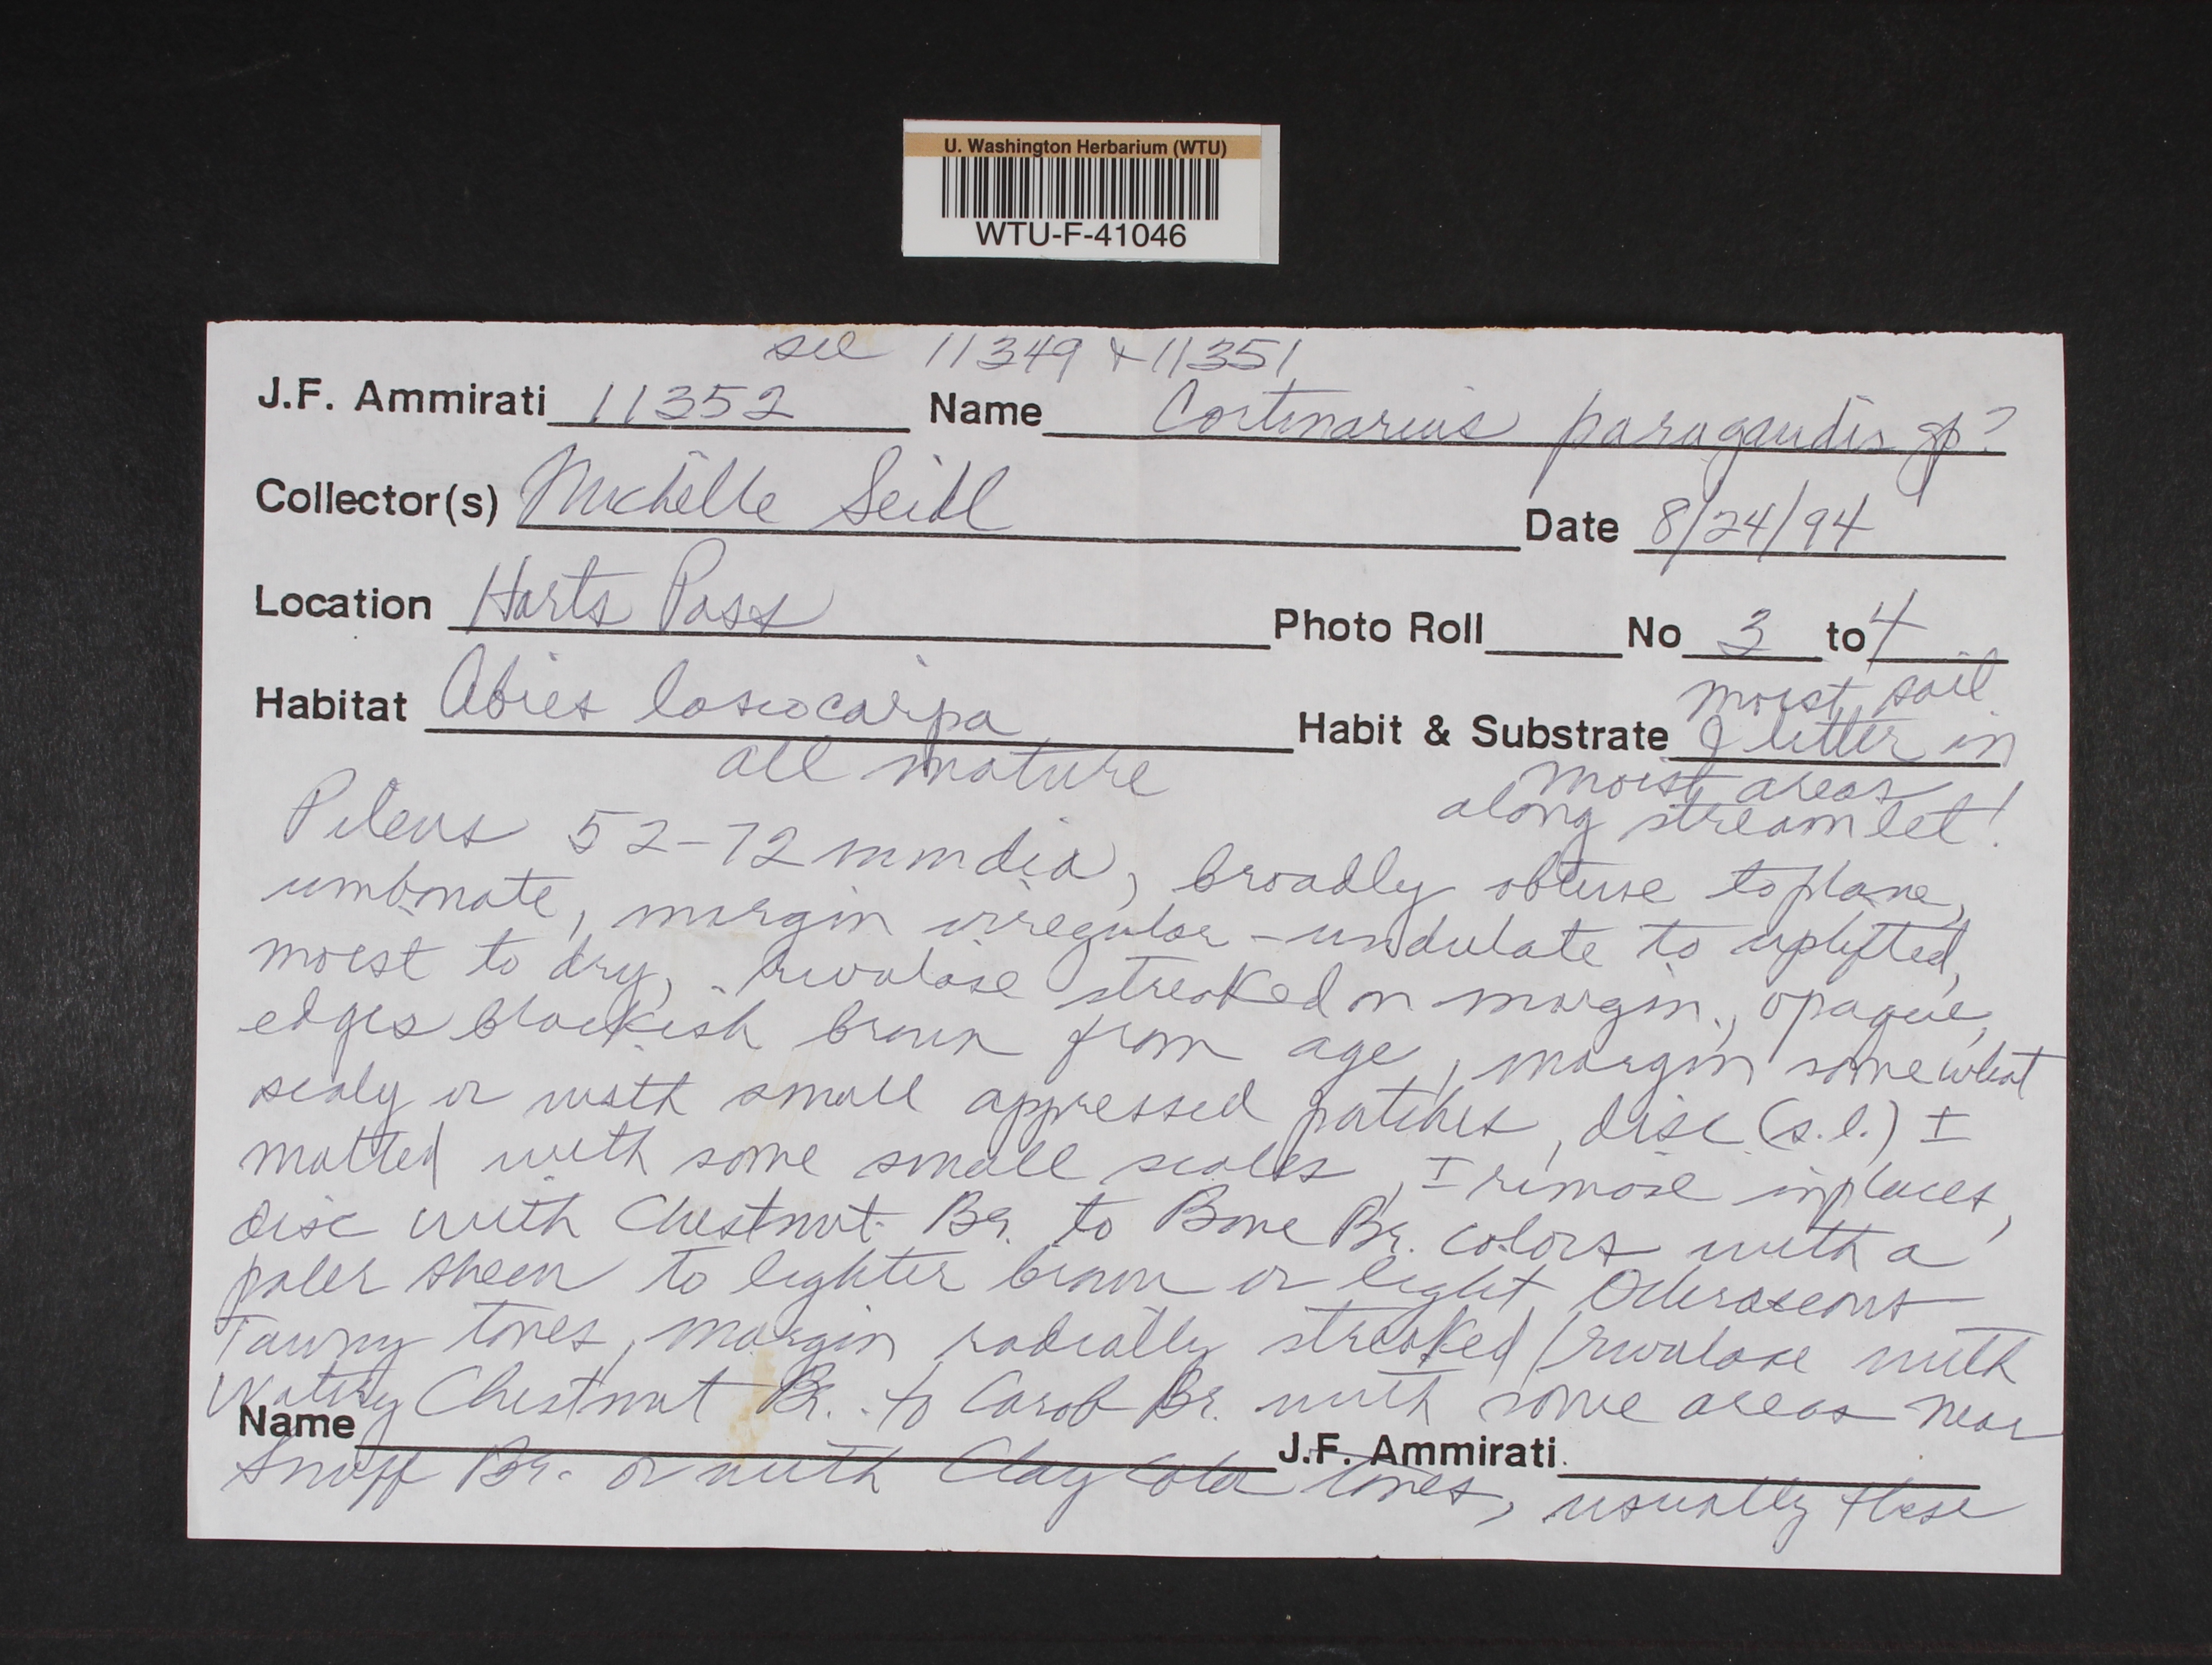 U. Washington Herbarium (WTU)
WTU-F-41046
see 11349 + 11351
J.F. Ammirati 11352 Name Cortinarius paragaudis gp?
Collector(s) Michelle Seidl Date 8/24/94
Location Harts Pass Photo Roll No 3 to 4
Habitat Abies lasiocarpa Habit & Substrate moist soil
& litter in
moist areas
along streamlet!
all mature
Pileus 52-72 mm dia, broadly obtuse to plane,
umbonate, margin irregular - undulate to uplifted,
moist to dry, rivulose streaked on margin, opaque,
edges blackish brown from age, margin somewhat
scaly or with small appressed patches, disc (s.l.) ±
matted with some small scales, ± rimose in places,
disc with Chestnut Br. to Bone Br. colors with a
paler sheen to lighter brown or light Ochraceous
Tawny tones, margin radially streaked/rivulose with
watery Chestnut Br. to Carob Br. with some areas near
Name J.F. Ammirati
Snuff Br. or with Clay Color tones, usually these